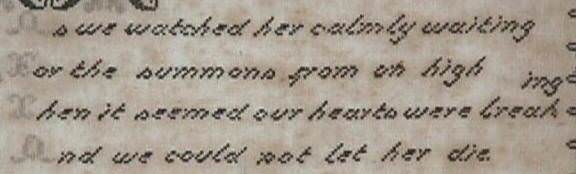 As we watched her calmly waiting
For the summons from on high
Then it seemed our hearts were breaking
And we could not let her die.